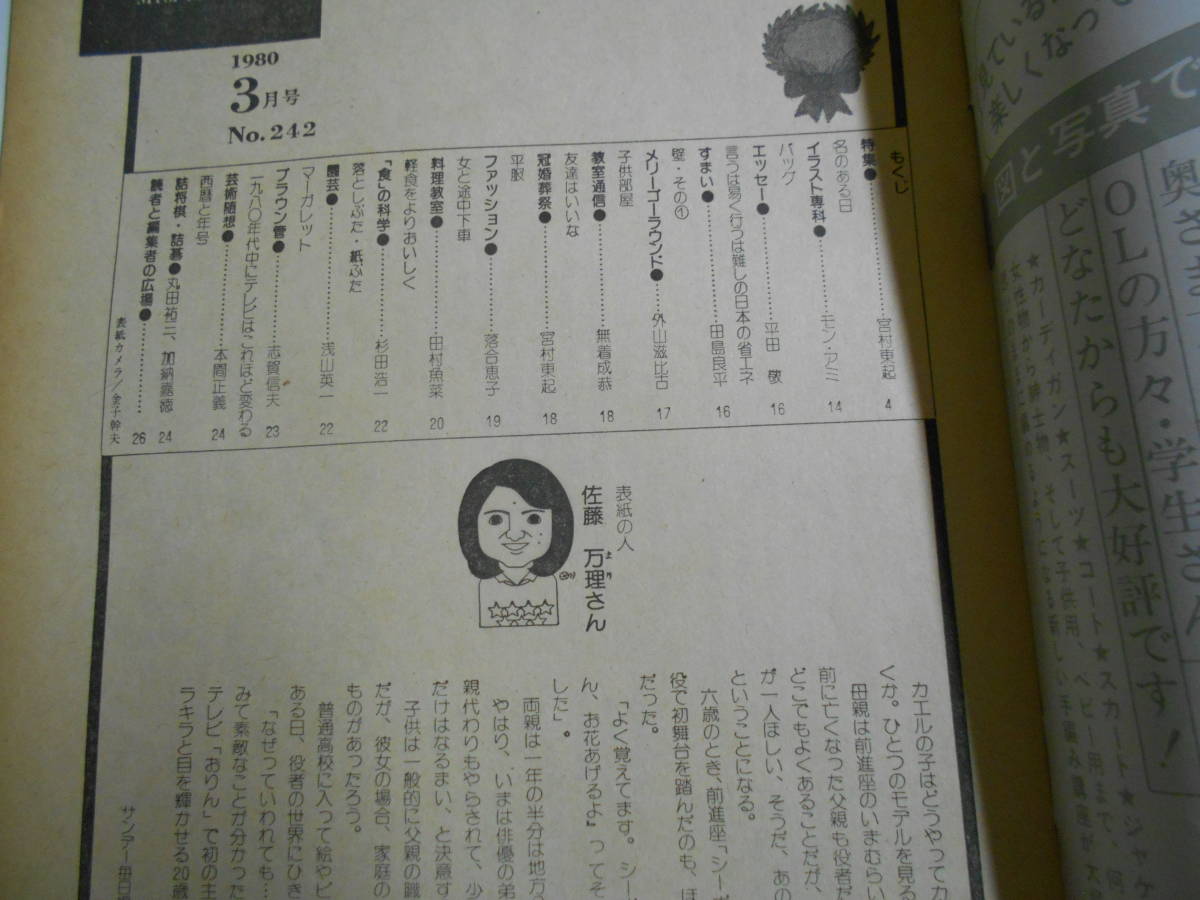 1980
3月号
No.242
もくじ
特集●……宮村東起 4
名のある日
イラスト専科●……モン・アミ 14
バッグ
エッセー●……平田 敬 16
言うは易く行うは難しの日本の省エネ
すまい●……田島良平 16
壁・その①
メリーゴーラウンド●……外山滋比古 17
子供部屋
教室通信●……無着成恭 18
友達はいいな
冠婚葬祭●……宮村東起 18
平服
ファッション●……落合恵子 19
女と途中下車
料理教室●……田村魚菜 20
軽食をよりおいしく
「食」の科学●……杉田浩一 22
落としぶた・紙ぶた
園芸●……浅山英一 22
マーガレット
ブラウン管●……志賀信夫 23
一九八〇年代中にテレビはこれほど変わる
芸術随想●……本間正義 24
西暦と年号
詰将棋・詰碁●丸田祐三、加納嘉徳 24
読者と編集者の広場●…… 26
表紙カメラ/金子幹夫
表紙の人
佐藤 万理さん
まり
カエルの子はどうやってカ
くか。ひとつのモデルを見る
母親は前進座のいまむらい
前に亡くなった父親も役者だ
どこでもよくあることだが、
が一人ほしい、そうだ、あの
ということになる。
六歳のとき、前進座「シー
役で初舞台を踏んだのも、ほ
だった。
「よく覚えてます。シー
ん、お花あげるよ〟ってそ
した」。
両親は一年の半分は地方
やはり、いまは俳優の弟
親代わりもやらされて、少
だけはなるまい、と決意す
子供は一般的に父親の職
だが、彼女の場合、家庭の
ものがあったろう。
普通高校に入って絵やピ
ある日、役者の世界にひき
「なぜっていわれても…
みて素敵なことが分かった
テレビ「おりん」で初の主
ラキラと目を輝かせる20歳
サンデー毎日
見ている
楽しくなって
図と写真で
奥さま
OLの方々・学生さん
どなたからも大好評です!
★カーディガン★スーツ★コート★スカート★ジャケ
女性物から紳士物、そして子供用、ベビー用まで、何